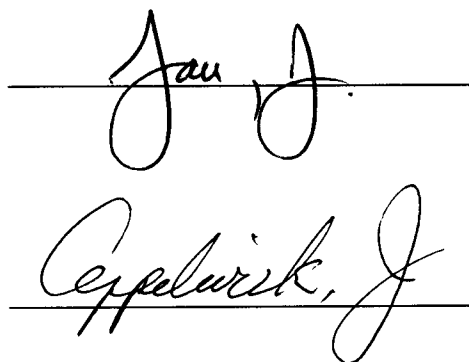 Lau, J.
Appelwick, J